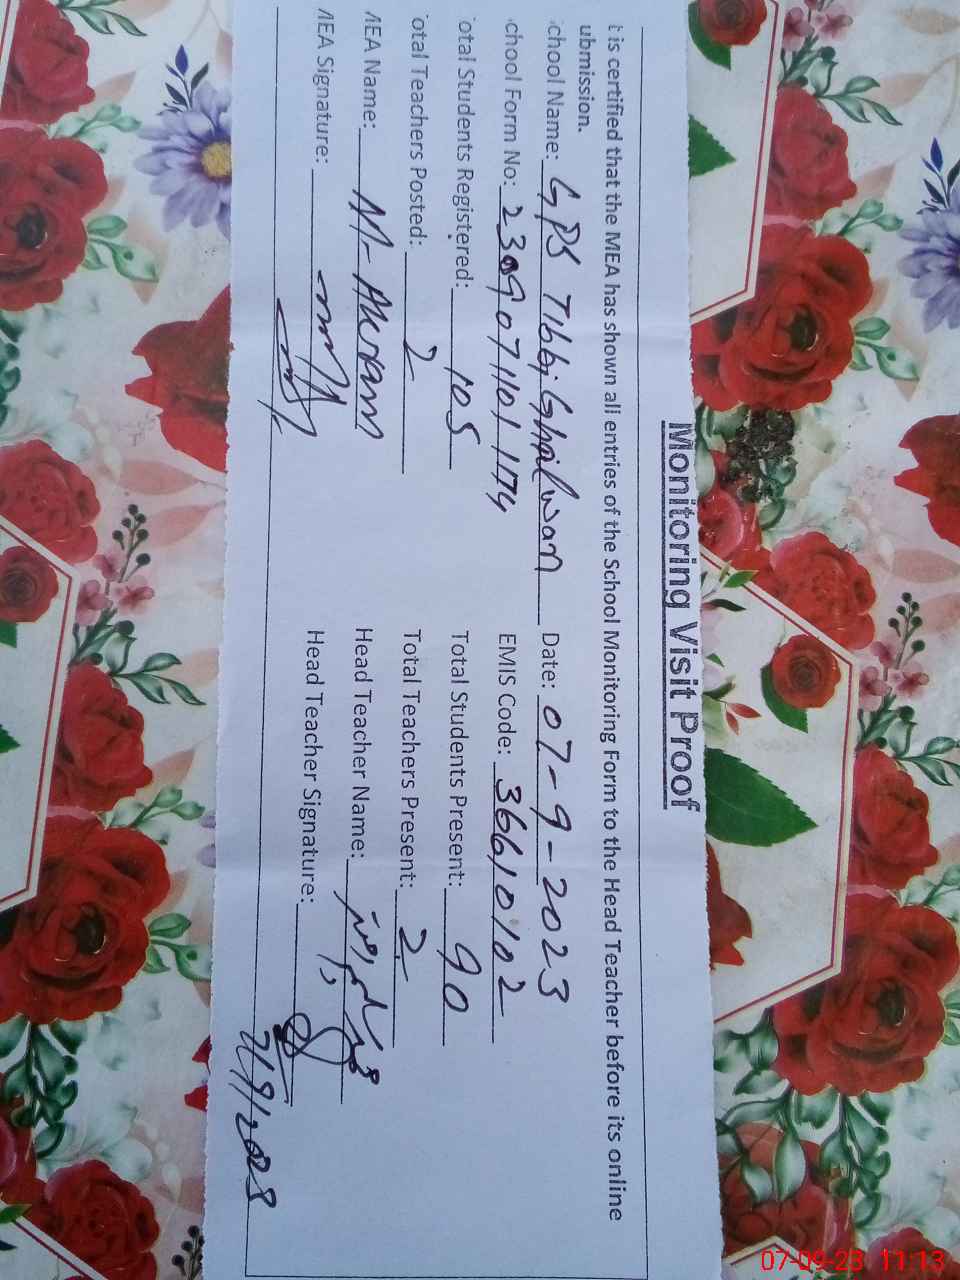 Monitoring Visit Proof
t is certified that the MEA has shown all entries of the School Monitoring Form to the Head Teacher before its online
ubmission.
chool Name: GPS Tibbi Ghilwan Date: 07-9-2023
chool Form No: EMIS Code: 36610102
otal Students Registered: 105 Total Students Present: 90
otal Teachers Posted: 2 Total Teachers Present: 2
MEA Name: M-Akram Head Teacher Name:
MEA Signature: Head Teacher Signature:
7/9/2023
07-09-23 11:13